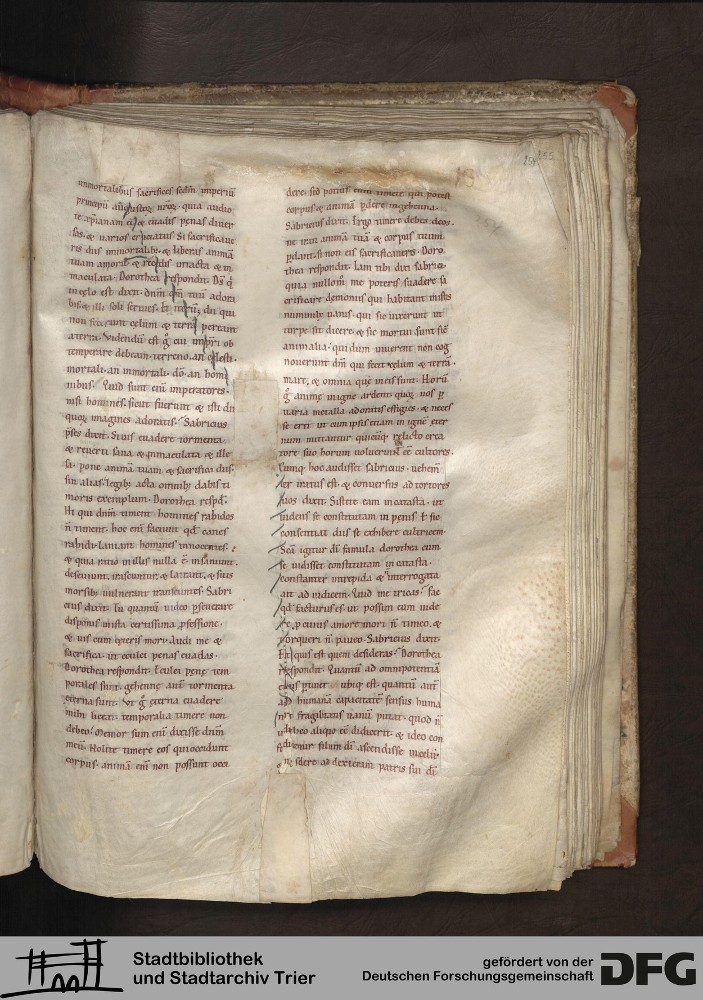 inmortalibus sacrifices scdm imperiū
principū augustoꝝ nr̄oꝝ quia audio
te xp̄ianam eē & euadis penas diuer
sas. & uarios cruciatus Si sacrificaue
ris diis inmortalib; & liberas animā
tuam amoris & reddis intacta & in
maculata. Dorothea respondit. Ds̄ q̄
in celo est dixit. dnm̄ dm̄ tuū adora
bis. & illi soli seruies. Et iterū; dii qui
non fecerunt celum & terrā pereant
a terra. Videndū est g̊ cui imp̄ri ob
temperare debeam. terreno. an celesti.
mortali. an inmortali. dō. an homi
nibus. Quid sunt enī imperatores.
nisi homines. sicut fuerunt & isti dii
quoꝝ imagines adoratis. Sabricius
p̄ses dixit. Si uis euadere tormenta.
& reuerti sana & inmaculata & ille
sa. pone animā tuam & sacrifica diis.
sin alias. legib; acta omnib; dabis ti
moris exemplum. Dorothea respd̄.
Hi qui dnm̄ timent homines rabidos
n̄ timent. hoc enī faciunt qd̄ canes
rabidi. laniant homines innocentes.
& quia ratio in illis nulla ē. insaniunt.
deseuiunt. irascuntur. & latrant. & suis
morsib; uulnerant transeuntes. Sabri
cius dixit. In quantū uideo p̄seuerare
disponis in ista certissima p̄fessione.
& uis cum ceteris mori. Audi me &
sacrifica. ut eculei penas euadas.
Dorothea respondit. Eculei penę tem
porales sunt. gehennę autē tormenta
ęterna sunt. Vt g̊ ęterna euadere
mihi liceat. temporalia timere non
debeo. Memor sum enī dixisse dnm̄
meū. Nolite timere eos qui occidunt
corpus. animā enī non possunt occi
dere. sed potius eum timete qui potest
corpus & animā pdere in gehenna.
Sabricius dixit. Ergo timere debes deos.
ne irati animā tuā & corpus tuum
pdant. si non eis sacrificaueris. Doro
thea respondit. Iam tibi dixi sabrici.
quia nullom̊ me poteris suadere sa
crificare demoniis qui habitant in istis
numinib; uanis. qui sic uixerunt ut
turpe sit dicere. & sic mortui sunt sic̄
animalia. qui dum uiuerent non cog
nouerunt dm̄ qui fecit celum & terrā.
mare. & omnia que in eis sunt. Horū
g̊ anime in igne ardent. quoꝝ uos p
uaria metalla adoratis effigies. & neces
se erit ut cum ipsis etiam in ignē eter
num mittantur quicūq; relicto crea
tore suo horum uoluerint eē cultores.
Cunq; hoc audisset sabricius. uehem̄
ter iratus est. & conuersus ad tortores
suos dixit. Sistite eam in catasta. ut
uidens se constitutam in penis t̄ sic
consentiat diis se exhibere cultricem.
Scā igitur di famula dorothea cum
se uidisset constitutam in catasta.
constanter intrepida & interrogata
ait ad iudicem. Quid me tricas? fac
qd̄ facturus es. ut possum eum uide
re. p cuius amore mori n̄ timeo. &
torqueri n̄ paueo. Sabricius dixit.
Et quis est quem desideras? Dorothea
respondit. Quantū ad omnipotentiā
eius ptinet ubiq; est. quantū autē
ad humanā capacitatē sensus huma
nę fragilitatis uanū putat. quod n̄
ab eo aliqo eē diducerit. & ideo con
fidenter filium di ascendisse in celū.
& sedere ad dexteram patris sui di
Stadtbibliothek
und Stadtarchiv Trier
gefördert von der
Deutschen Forschungsgemeinschaft
DFG